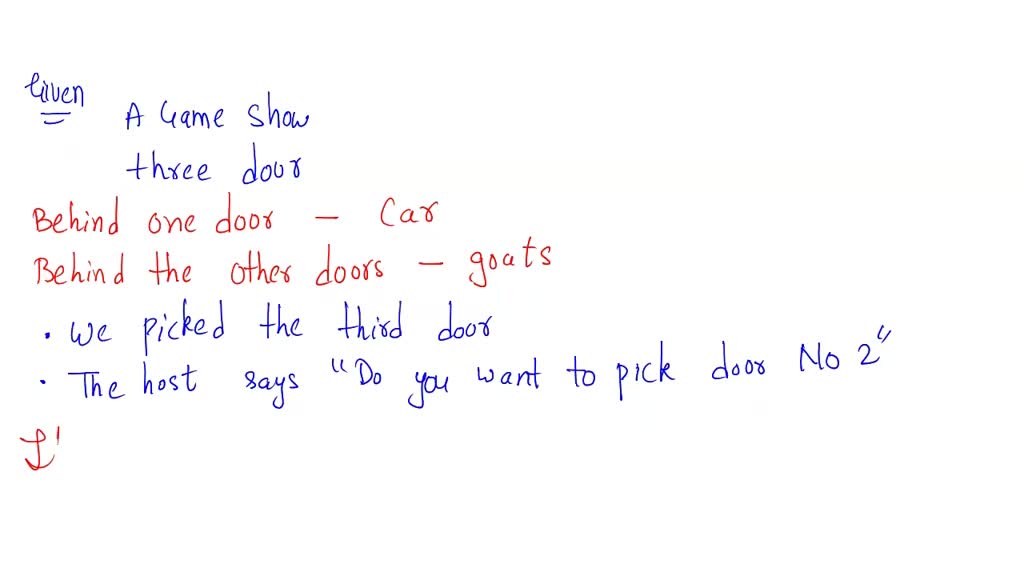 Given
A Game show
three door
Behind one door – Car
Behind the other doors – goats
• We picked the third door
• The host says "Do you want to pick door No 2"